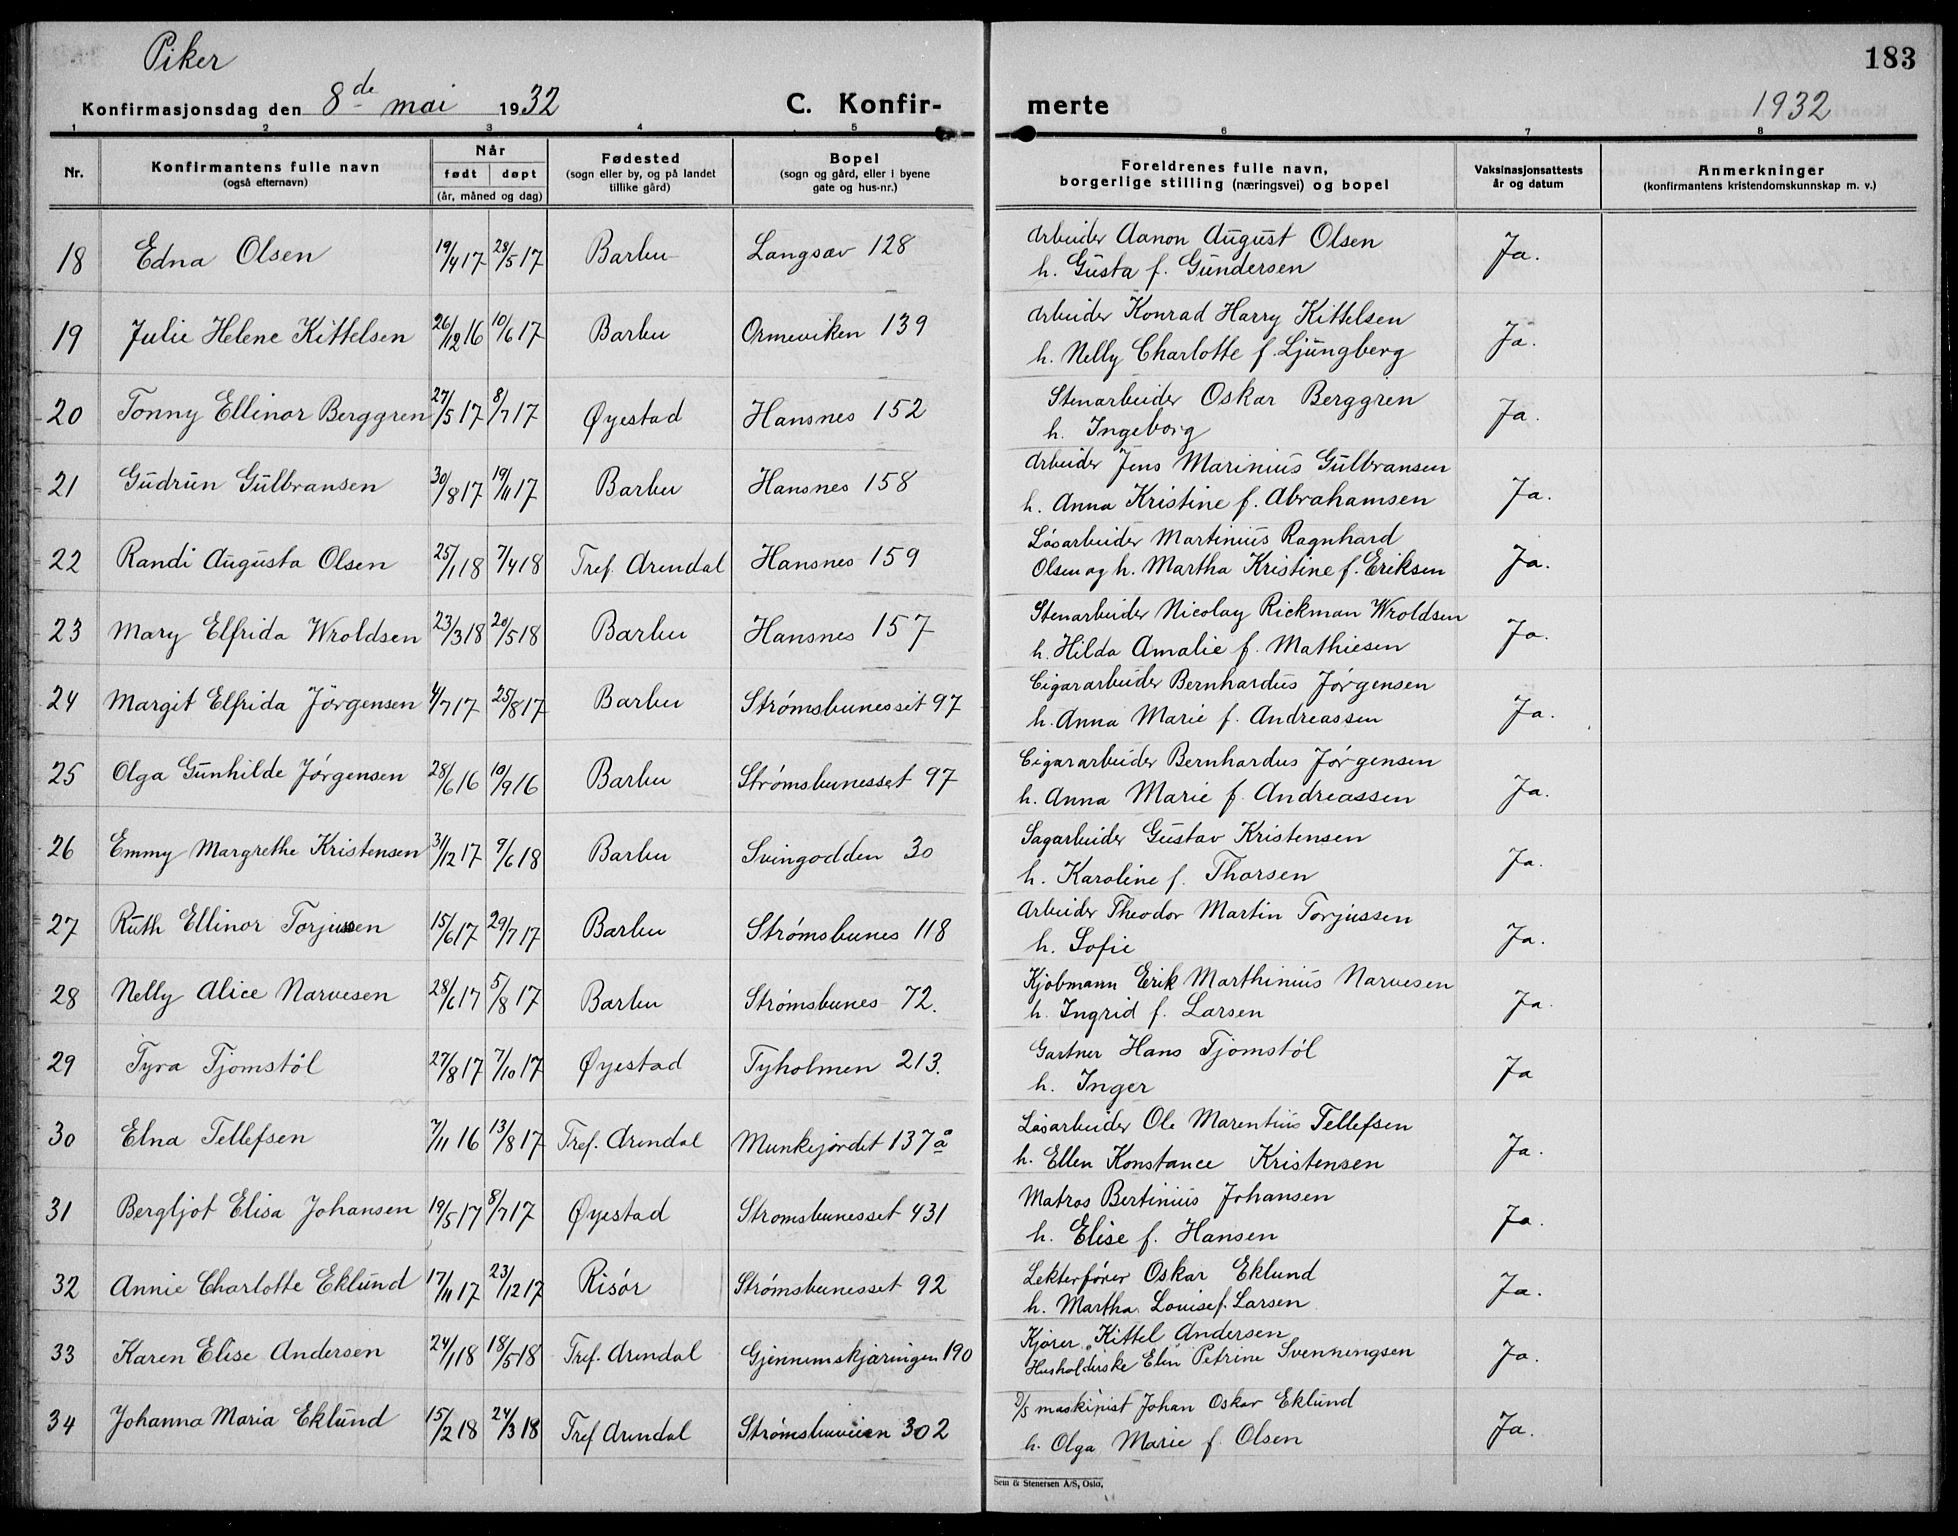 Piker
183
Konfirmasjonsdag den 8de mai 1932
C. Konfir-
merte
1932
1 2 3 4 5 6 7 8
Nr.
Konfirmantens fulle navn
(også efternavn)
Når
født døpt
(år, måned og dag)
Fødested
(sogn eller by, og på landet
tillike gård)
Bopel
(sogn og gård, eller i byene
gate og hus-nr.)
Foreldrenes fulle navn,
borgerlige stilling (næringsvei) og bopel
Vaksinasjonsattests
år og datum
Anmerkninger
(konfirmantens kristendomskunnskap m. v.)
18 Edna Olsen 19/4 17 28/5 17 Barbu Langsæv 128 Arbeider Aanon August Olsen Ja.
h. Gusta f. Gundersen
19 Julie Helene Kittelsen 26/12 16 10/6 17 Barbu Ormeviken 139 Arbeider Konrad Harry Kittelsen Ja.
h. Nelly Charlotte f. Ljungberg
20 Tonny Ellinor Berggren 27/5 17 8/7 17 Øyestad Hansnes 152 Stenarbeider Oskar Berggren Ja.
h. Ingeborg
21 Gudrun Gulbransen 30/8 17 19/11 17 Barbu Hansnes 158 Arbeider Jens Marinius Gulbransen Ja.
h. Anna Kristine f. Abrahamsen
22 Randi Augusta Olsen 25/1 18 7/4 18 Tref. Arendal Hansnes 159 Løsarbeider Martinius Ragnhard Ja.
Olsen og h. Martha Kristine f. Eriksen
23 Mary Elfrida Wroldsen 23/3 18 20/5 18 Barbu Hansnes 157 Stenarbeider Nicolay Rickman Wroldsen Ja.
h. Hilda Amalie f. Mathiesen
24 Margit Elfrida Jørgensen 4/7 17 25/8 17 Barbu Strømsbunesset 97 Cigararbeider Bernhardus Jørgensen Ja.
h. Anna Marie f. Andreassen
25 Olga Gunhilde Jørgensen 28/6 16 10/9 16 Barbu Strømsbunesset 97 Cigararbeider Bernhardus Jørgensen Ja.
h. Anna Marie f. Andreassen
26 Emmy Margrethe Kristensen 31/12 17 9/6 18 Barbu Svingodden 30 Sagarbeider Gustav Kristensen Ja.
h. Karoline f. Thorsen
27 Ruth Ellinor Torjussen 15/6 17 29/7 17 Barbu Strømsbunes 118 Arbeider Theodor Martin Torjussen Ja.
h. Sofie
28 Nelly Alice Narvesen 28/6 17 5/8 17 Barbu Strømsbunes 72. Kjøbmann Erik Marthinius Narvesen Ja.
h. Ingrid f. Larsen
29 Tyra Tjomstøl 27/8 17 7/10 17 Øyestad Tyholmen 213. Gartner Hans Tjomstøl Ja
h. Inger
30 Elna Tellefsen 7/11 16 13/8 17 Tref. Arendal Munkejordet 137a Løsarbeider Ole Marentius Tellefsen Ja.
h. Ellen Konstance Kristensen
31 Bergljot Elisa Johansen 19/5 17 8/7 17 Øyestad Strømsbunesset 431 Matros Bertinius Johansen Ja.
h. Elise f. Hansen
32 Annie Charlotte Eklund 17/11 17 23/12 17 Risør Strømsbunesset 92 Lekterfører Oskar Eklund Ja.
h. Martha Louise f. Larsen
33 Karen Elise Andersen 24/1 18 18/5 18 Tref. Arendal Gjennemskjæringen 190 Kjører Kittel Andersen Ja.
Husholderske Elen Petrine Svenningsen
34 Johanna Maria Eklund 15/2 18 24/3 18 Tref Arendal Strømsbuveien 302 D/S maskinist Johan Oskar Eklund Ja.
h. Olga Marie f. Olsen
Sem & Stenersen A/S, Oslo.